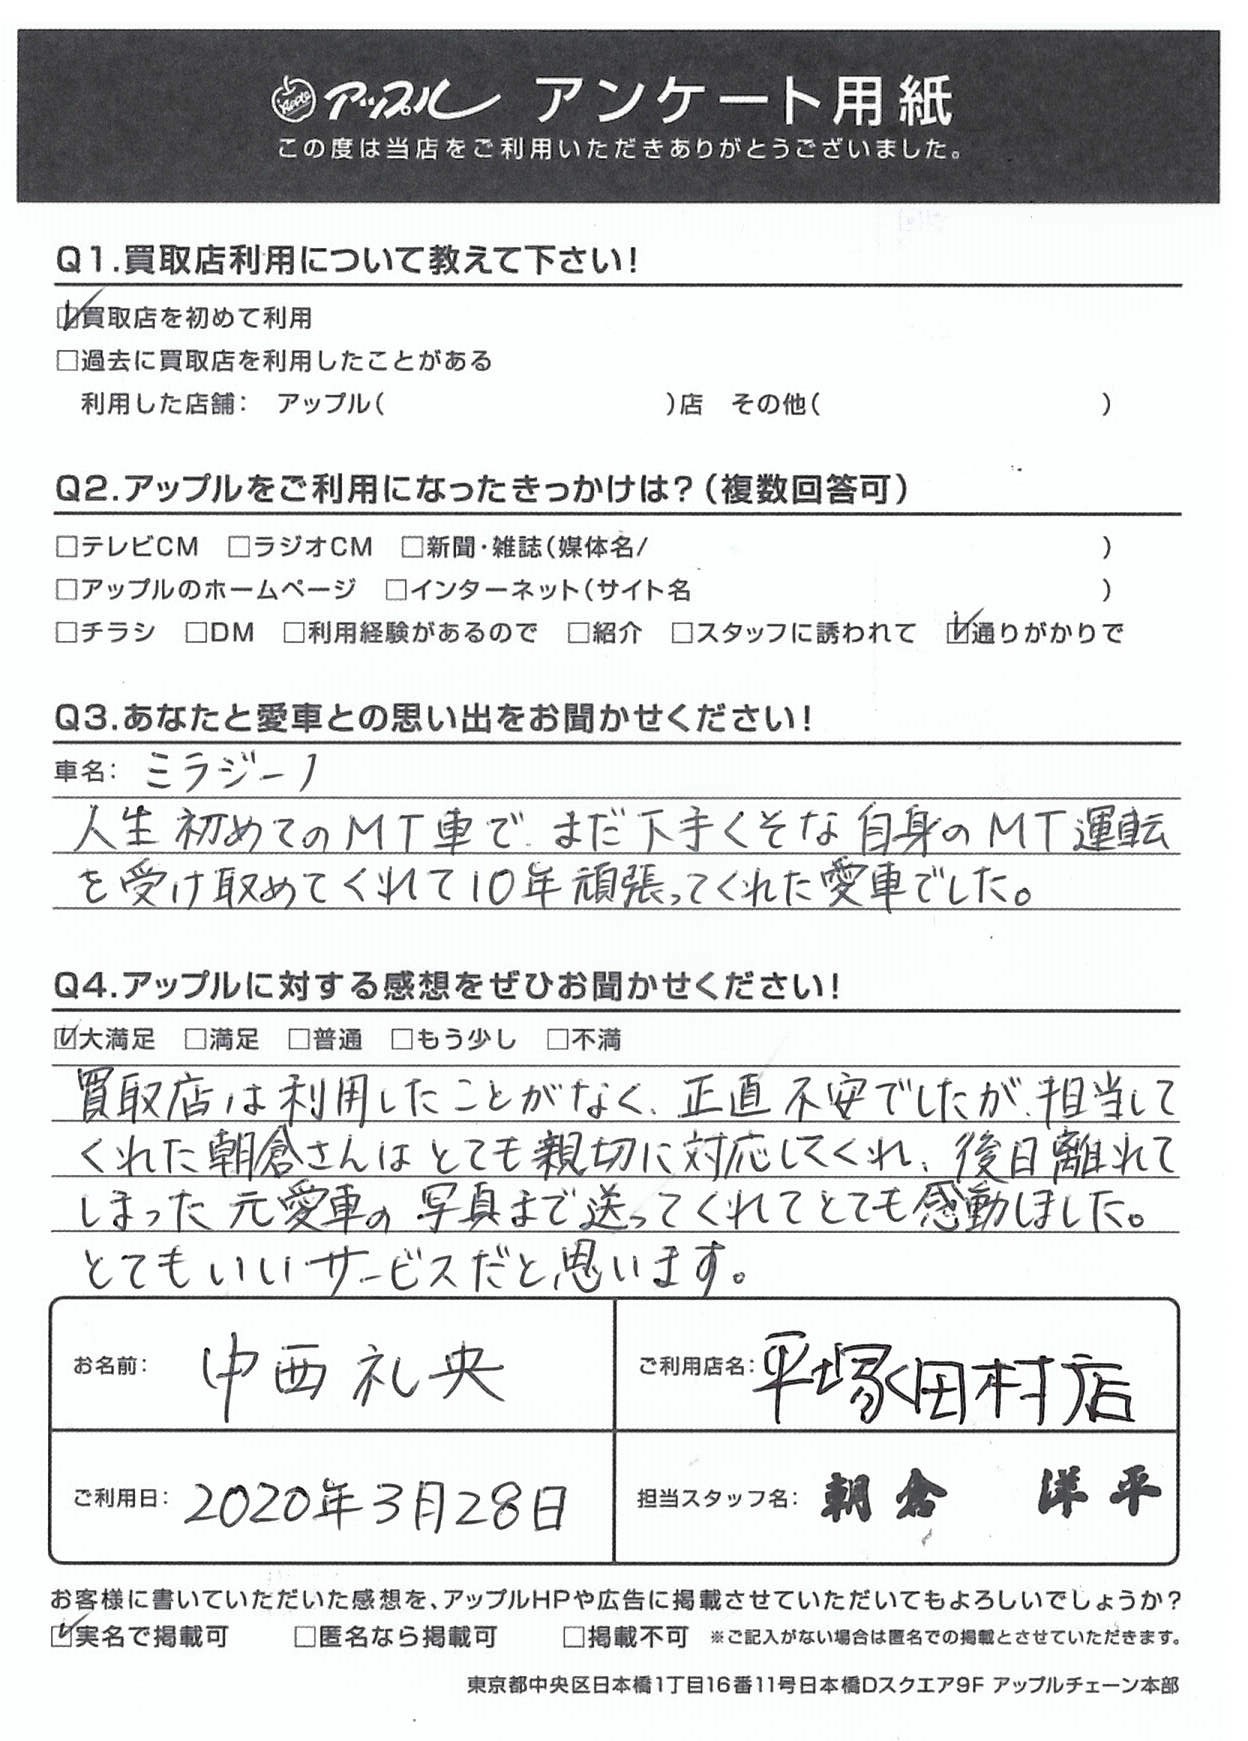 Apple アップル アンケート用紙
この度は当店をご利用いただきありがとうございました。
Q1.買取店利用について教えて下さい！
☑買取店を初めて利用
□過去に買取店を利用したことがある
利用した店舗： アップル（ ）店 その他（ ）
Q2.アップルをご利用になったきっかけは？（複数回答可）
□テレビCM □ラジオCM □新聞・雑誌（媒体名/ ）
□アップルのホームページ □インターネット（サイト名 ）
□チラシ □DM □利用経験があるので □紹介 □スタッフに誘われて ☑通りがかりで
Q3.あなたと愛車との思い出をお聞かせください！
車名： ミラジーノ
人生初めてのMT車で、まだ下手くそな自身のMT運転
を受け取めてくれて10年頑張ってくれた愛車でした。
Q4.アップルに対する感想をぜひお聞かせください！
☑大満足 □満足 □普通 □もう少し □不満
買取店は利用したことがなく、正直不安でしたが、担当して
くれた朝倉さんはとても親切に対応してくれ、後日離れて
しまった元愛車の写真まで送ってくれてとても感動しました。
とてもいいサービスだと思います。
お名前： 中西礼央 ご利用店名： 平塚田村店
ご利用日： 2020年3月28日 担当スタッフ名： 朝倉 洋平
お客様に書いていただいた感想を、アップルHPや広告に掲載させていただいてもよろしいでしょうか？
☑実名で掲載可 □匿名なら掲載可 □掲載不可 ※ご記入がない場合は匿名での掲載とさせていただきます。
東京都中央区日本橋1丁目16番11号日本橋Dスクエア9F アップルチェーン本部